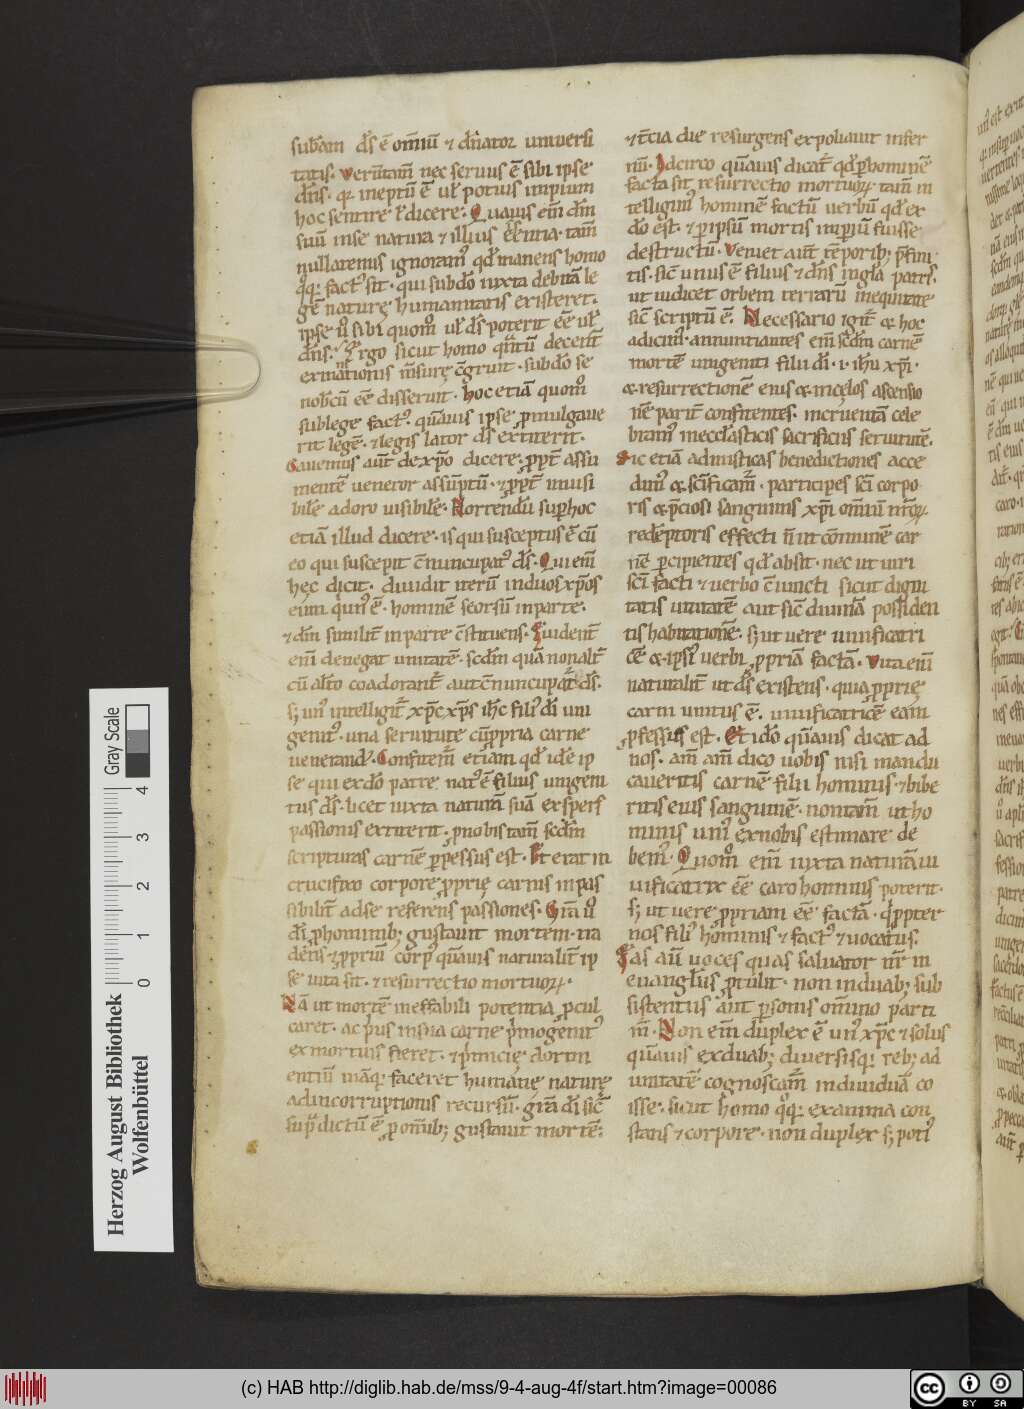 subdam dš ē omiū ⁊ dnator universi
tatis. verūtam̄ nec servus ē sibi ipse
dñs. qr ineptū ē ul potius impium
hoc sentire ł dicere. Quavis em̄ dm̄
suū inse natura ⁊ illius eēntia. tam̄
nullatenus ignoram' qd manens homo
qq; fact' sit. qui subdo iuxta debitā le
gē naturę humanitatis existeret.
ipse ů sibi quom̊ ul dš poterit eē ul
dñs. Ergo sicut homo q̄ntū decent̄
exinationis m̄surę c̄gruit. subdo se
nobcū eē disseruit. hoc etiā quom̊
sublege fact'. quāvis ipse pmulgave
rit legē. ⁊ legis lator dš extiterit.
Cavemus aut̄ dexp̄o dicere. ppt̄ assu
mentē veneror assūptū. ⁊ ppt̄ invisi
bilē adoro visibilē. Horrendū sup hoc
etiā illud dicere. is qui susceptus ē cū
eo qui suscepit c̄nuncupat' dš. Qui em̄
hęc dicit. dividit iterū induos xp̄os
eum qi un' ē. hominē seorsū inparte.
⁊ dm̄ similit̄ inparte c̄stituens. Evident̄
em̄ denegat unitatē. scdm̄ quā non alt̄
cū alt̊o coadorant̄ aut c̄nuncupat̄ dš.
s; un' intelligit̄ xp̄c xp̄s ihc̄ fili' di uni
genit'. una servitute cū ppria carne
venerand'. Confitem̄ etiam qd ide ip
se qui exdo patre nat' ē filius unigeni
tus dš. licet iuxta naturā suā expers
passionis extiterit. pnobis tam̄ scdm̄
scripturas carnē ppessus est. Et erat in
crucifixo corpore pprię carnis inpas
sibilit̄ adse referens passiones. Grā ů
di phominib; gustavit mortem. tra
dens ⁊ ppriū corp' quāvis naturalit̄ ip
se vita sit. ⁊ resurrectio mortuoꝝ.
Nā ut mortē ineffabili potentia pcul
caret. ac p'us insua carne p'mogenit'
ex mortuis fieret. ⁊ p'micię dormi
entiū viāq; faceret humanę naturę
adincorruptionis recursū. grā di sic̄
sup dictū ē p omib; gustavit mortē:
⁊ t̄cia die resurgens expoliavit infer
nū. Idcirco quāvis dicat̄ qd phominē
facta sit resurrectio mortuoꝝ. tam̄ in
telligim' hominē factū verbū qd ex
do est. ⁊ p ipsū mortis imp̄iū fuisse
destructū. Veniet aut̄ tēporib; p̄fini
tis. sic̄ unus ē filius ⁊ dñs ingła patris.
ut iudicet orbem terrarū inequitate
sic̄ scriptū ē. Necessario igit̄ ⁊ hoc
adicim'. annuntiantes em̄ scdm̄ carnē
mortē unigeniti filii di. i. ihu xp̄i.
⁊ resurrectionē eius ⁊ incęlos ascensio
nē parit̄ confitentes. incruentā cele
bram' inecclasticis sacrificiis servitutē.
Sic etiā admisticas benedictiones acce
dim' ⁊ scificam̄. participes sci corpo
ris ⁊ p̄ciosi sanguinis xp̄i omiū nr̄oꝝ
redēptoris effecti. n̄ ut cōmunē car
nē pcipientes qd absit. nec ut viri
sci facti ⁊ verbo c̄iuncti sicut digni
tatis unitatē aut sic̄ divinā possiden
tis habitationē. s; ut vere vivificatri
cē ⁊ ipsi' verbi ppriā factā. Vita em̄
naturalit̄ ut dš existens. quia pprię
carni unitus ē. vivificatricē eam
pfessus est. Et ido quāvis dicat ad
nos. am̄ am̄ dico vobis nisi mandu
caveritis carnē filii hominis. ⁊ bibe
ritis eius sanguinē. nontam̄ ut ho
minis uni' exnobis estimare de
bem'. Quom̊ em̄ iuxta naturā vi
vificatrix eē caro hominis poterit.
s; ut vere ppriam eē factā. qi ppter
nos fili' hominis ⁊ fact' ⁊ vocatus.
Eas aū voces quas salvator nr̄ in
evanglius ptulit. non induab; sub
sistentiis aut psonis om̄ino parti
m̄. Non em̄ duplex ē un' xp̄c ⁊ solus
quāvis exduab; diversisq; reb; ad
unitatē cognoscam̄ individuā co
isse. sicut homo qq; exanima con
stans ⁊ corpore. non duplex s; poti'
Gray Scale
0 1 2 3 4
Herzog August Bibliothek
Wolfenbüttel
(c) HAB http://diglib.hab.de/mss/9-4-aug-4f/start.htm?image=00086
cc BY SA